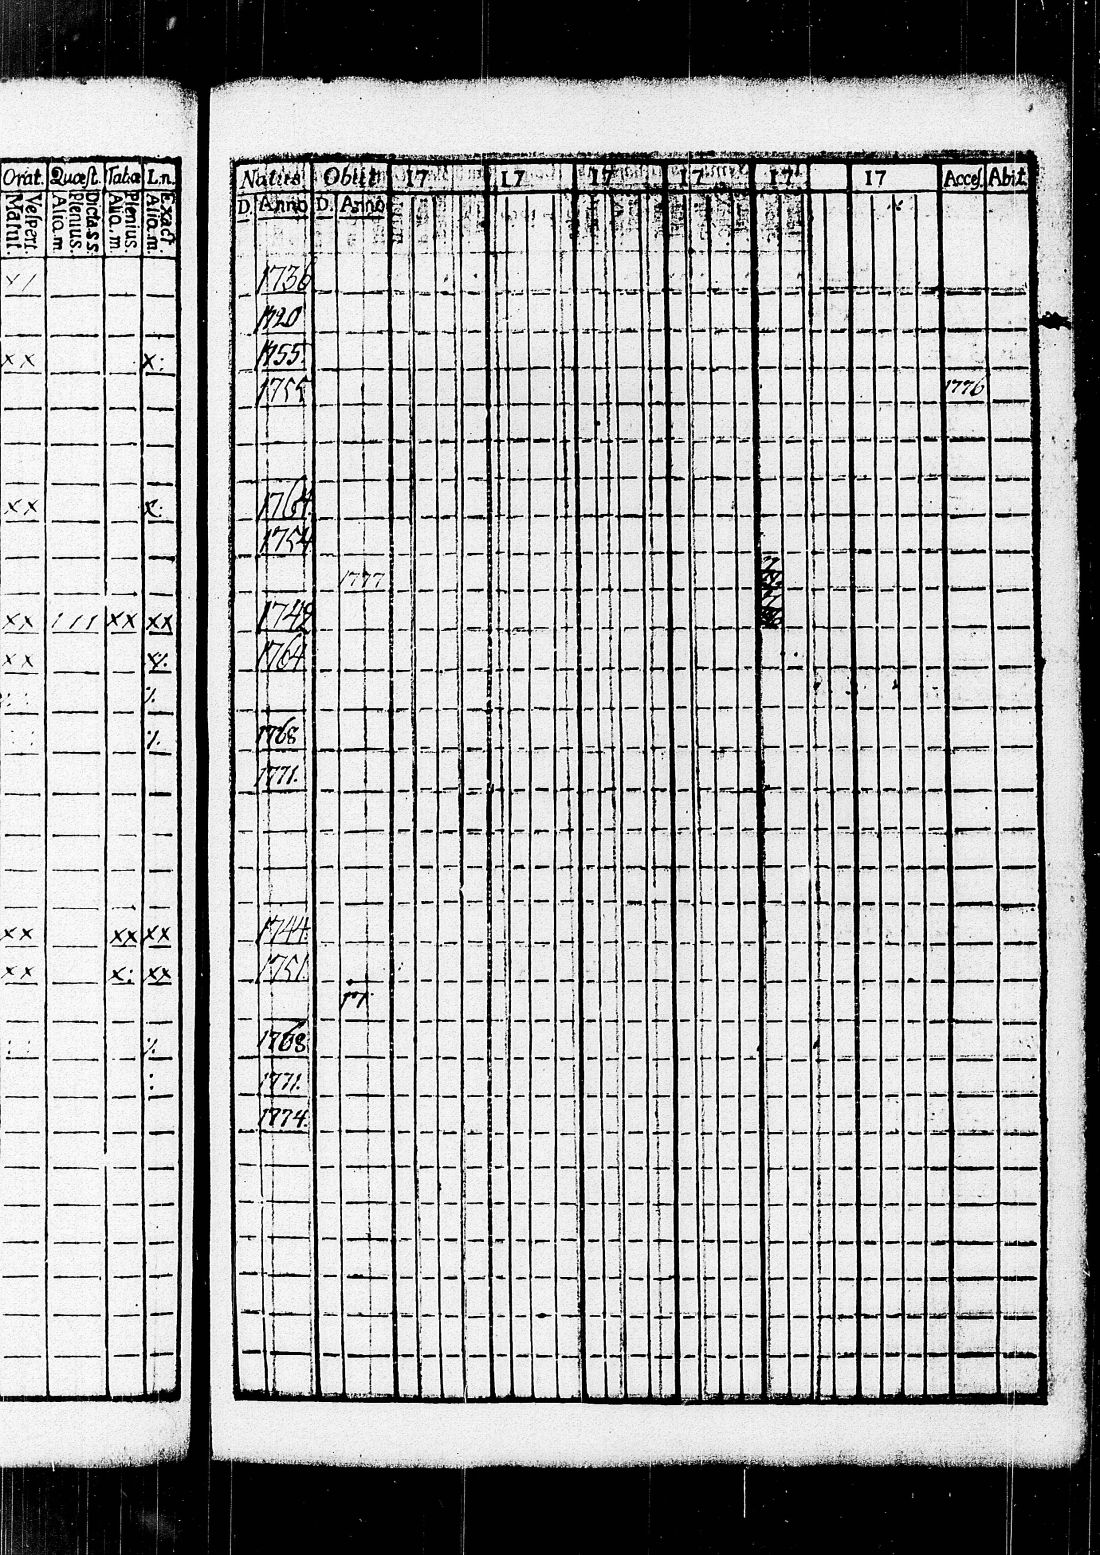 Orat. Quæst. Tabæ I.n.
Matut. Vesper. Alio. m Plenius. Dict. ass. Alio. m. Plenius. Alio. m. Exact
x /
x x x:
x x x:
x x / / / x x x x
x x x.
⁒
⁒
x x x x x x
x x x: x x
⁒
:
Natus Obiit 17 17 17 17 17 17 Acces. Abit
D. Anno D. Anno
1736
1720
1755.
1755 1776
1764.
1754
1777
1749
1764
1768
1771.
1744.
1751.
17
1768
1771.
1774.